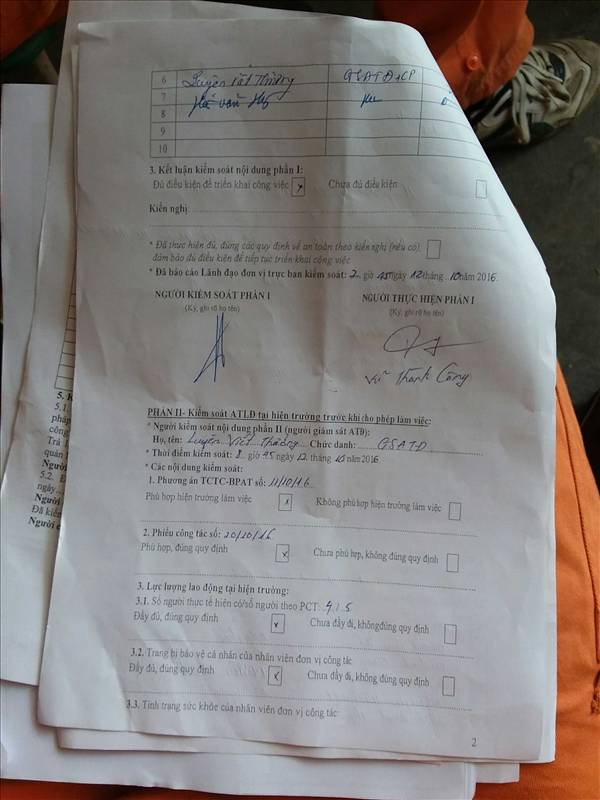 6 Luyện Viết Thường GSATĐ+CP
7
8
9
10
3. Kết luận kiểm soát nội dung phần I:
Đủ điều kiện để triển khai công việc x Chưa đủ điều kiện
Kiến nghị:
* Đã thực hiện đủ, đúng các quy định về an toàn theo kiến nghị (nếu có)
đảm bảo đủ điều kiện để tiếp tục triển khai công việc
* Đã báo cáo Lãnh đạo đơn vị trực ban kiểm soát: 2 giờ 45 ngày 12 tháng 10 năm 2016.
NGƯỜI KIỂM SOÁT PHẦN I NGƯỜI THỰC HIỆN PHẦN I
(Ký, ghi rõ họ tên) (Ký, ghi rõ họ tên)
Vũ Thanh Công
PHẦN II- Kiểm soát ATLĐ tại hiện trường trước khi cho phép làm việc:
* Người kiểm soát nội dung phần II (người giám sát ATĐ):
Họ, tên: Luyện Viết Thường Chức danh: GSATĐ
* Thời điểm kiểm soát: 8 giờ 45 ngày 12 tháng 10 năm 2016.
* Các nội dung kiểm soát:
1. Phương án TCTC-BPAT số: 11/10/16
Phù hợp hiện trường làm việc x Không phù hợp hiện trường làm việc
2. Phiếu công tác số: 20/10/16
Phù hợp, đúng quy định x Chưa phù hợp, không đúng quy định
3. Lực lượng lao động tại hiện trường:
3.1. Số người thực tế hiện có/số người theo PCT: 4/5
Đầy đủ, đúng quy định x Chưa đầy đủ, không đúng quy định
3.2. Trang bị bảo vệ cá nhân của nhân viên đơn vị công tác
Đầy đủ, đúng quy định x Chưa đầy đủ, không đúng quy định
3.3. Tình trạng sức khỏe của nhân viên đơn vị công tác:
2